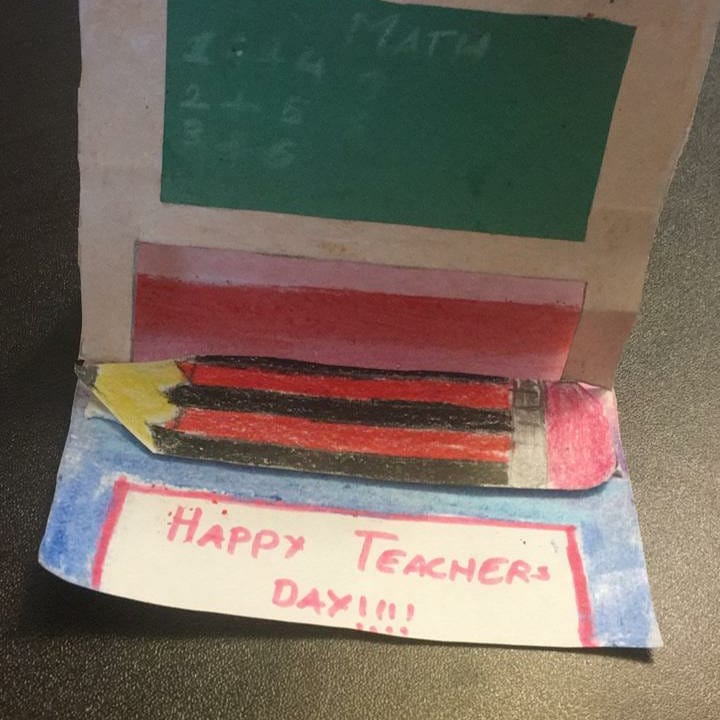 MATH
1 + 4
2 + 5
3 + 6
HAPPY TEACHERS
DAY!!!!